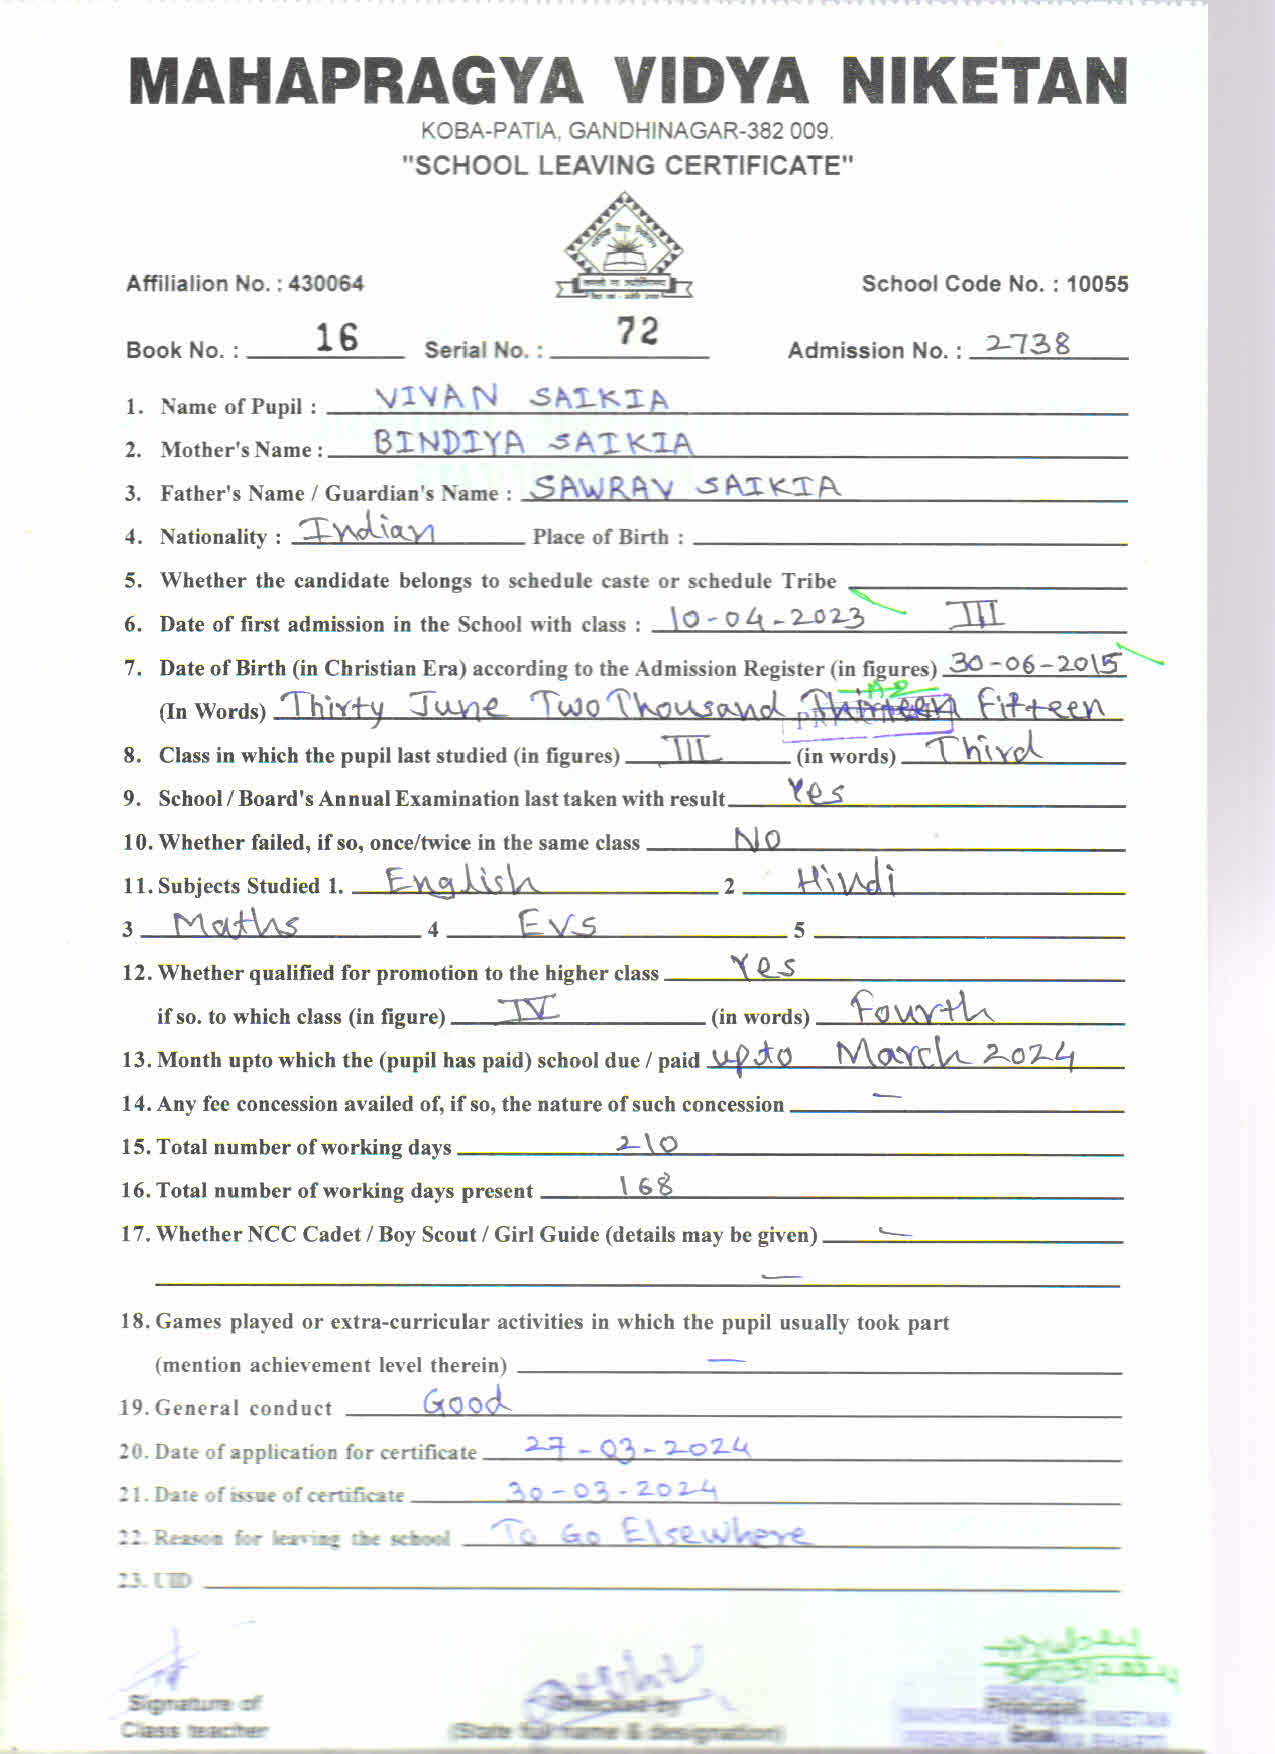 MAHAPRAGYA VIDYA NIKETAN
KOBA-PATIA, GANDHINAGAR-382 009.
"SCHOOL LEAVING CERTIFICATE"
Affilialion No. : 430064 School Code No. : 10055
Book No. : 16 Serial No. : 72 Admission No. : 2738
1. Name of Pupil : VIVAN SAIKIA
2. Mother's Name : BINDIYA SAIKIA
3. Father's Name / Guardian's Name : SAWRAV SAIKIA
4. Nationality : Indian Place of Birth :
5. Whether the candidate belongs to schedule caste or schedule Tribe
6. Date of first admission in the School with class : 10-04-2023 III
7. Date of Birth (in Christian Era) according to the Admission Register (in figures) 30-06-2015
(In Words) Thirty June Two Thousand Thirteen Fifteen
8. Class in which the pupil last studied (in figures) III (in words) Third
9. School / Board's Annual Examination last taken with result Yes
10. Whether failed, if so, once/twice in the same class No
11. Subjects Studied 1. English 2 Hindi
3 Maths 4 EVS 5
12. Whether qualified for promotion to the higher class Yes
if so. to which class (in figure) IV (in words) Fourth
13. Month upto which the (pupil has paid) school due / paid upto March 2024
14. Any fee concession availed of, if so, the nature of such concession —
15. Total number of working days 210
16. Total number of working days present 168
17. Whether NCC Cadet / Boy Scout / Girl Guide (details may be given) —
—
18. Games played or extra-curricular activities in which the pupil usually took part
(mention achievement level therein) —
19. General conduct Good
20. Date of application for certificate 27-03-2024
21. Date of issue of certificate 30-03-2024
22. Reason for leaving the school To Go Elsewhere
23. UID
Signature of Checked by Principal
Class teacher (State full name & designation) Seal